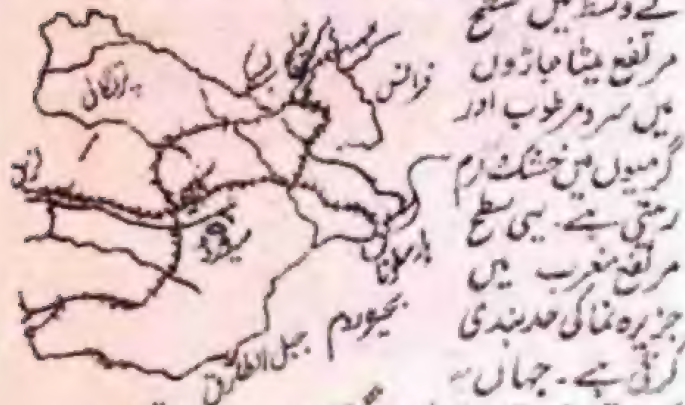 کے وسط میں سطح
مرتفع میٹا جاڑوں
میں سرد مرطوب اور
گرمیوں میں خشک گرم
رہتی ہے۔ یہی سطح
مرتفع مغرب میں
جزیرہ نما کی حد بندی
کرتی ہے۔ جہاں
فرانس
پرتگال
میڈرڈ
بارسلونا
بحیرہ روم
جبل الطارق